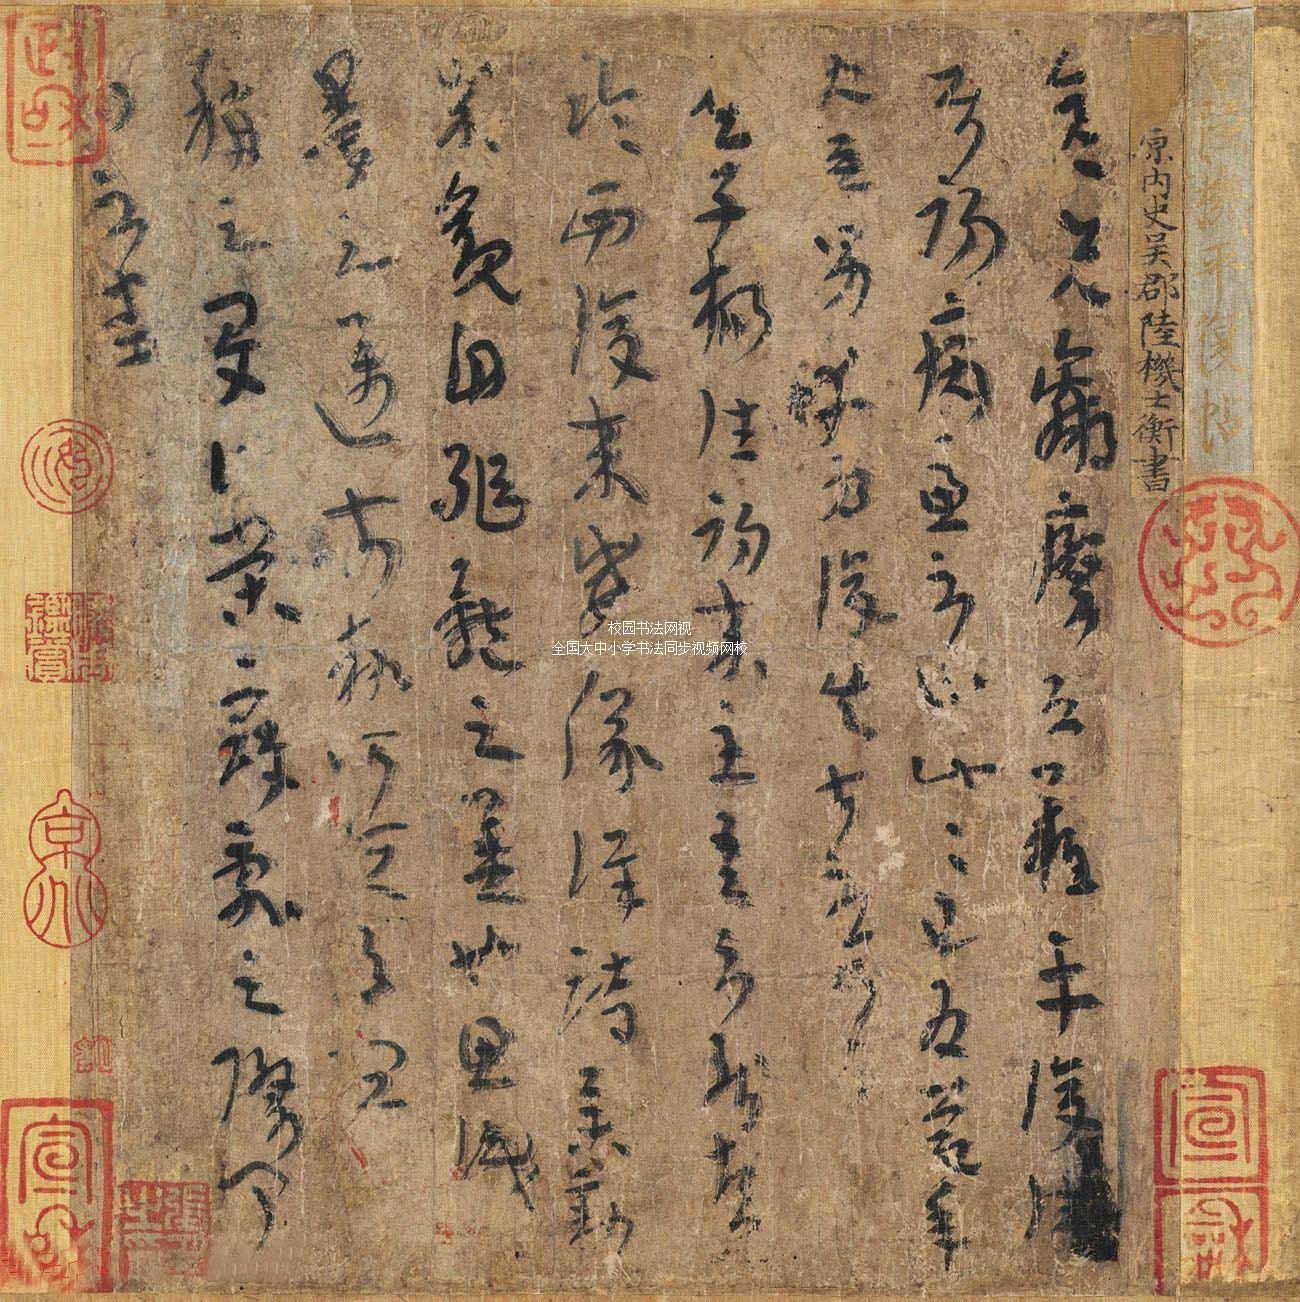 晉陸機平復帖
内史吳郡陸機士衡書
彦先羸瘵恐難平復往
屬初病慮不止此此已為慶承
使唯男幸為復失前憂耳
吳子楊往初來主吾不能盡
臨西復來威儀詳跱舉動
成觀自軀體之美也思識
量之邁前執所恒有宜
稱之夏伯榮寇亂之際聞
問不悉
校园书法网视
全国大中小学书法同步视频网校
宣
和
政
和